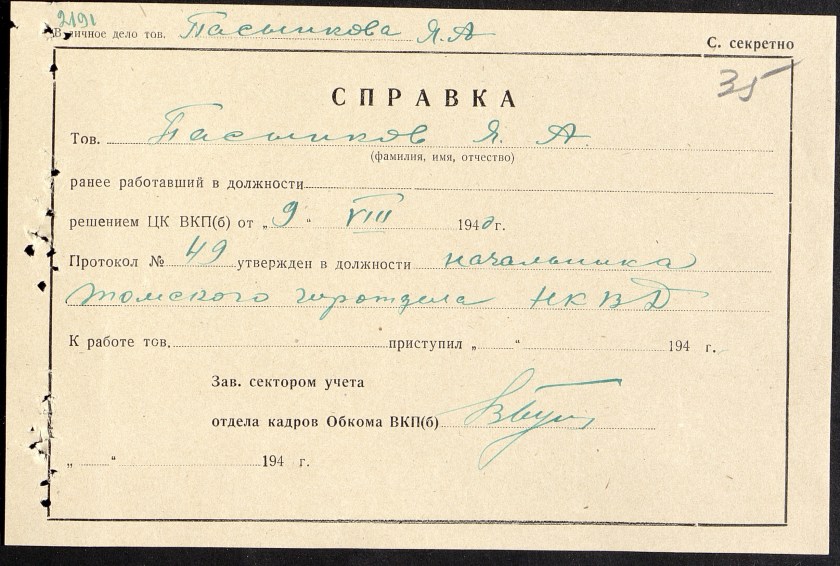 2191
В личное дело тов. Пасынкова Я. А
С. секретно
35
СПРАВКА
Тов. Пасынков Я. А.
(фамилия, имя, отчество)
ранее работавший в должности
решением ЦК ВКП(б) от „9“ VIII 1940 г.
Протокол № 49 утвержден в должности начальника
томского горотдела НКВД
К работе тов. приступил „ “ 194 г.
Зав. сектором учета
отдела кадров Обкома ВКП(б)
„ “ 194 г.